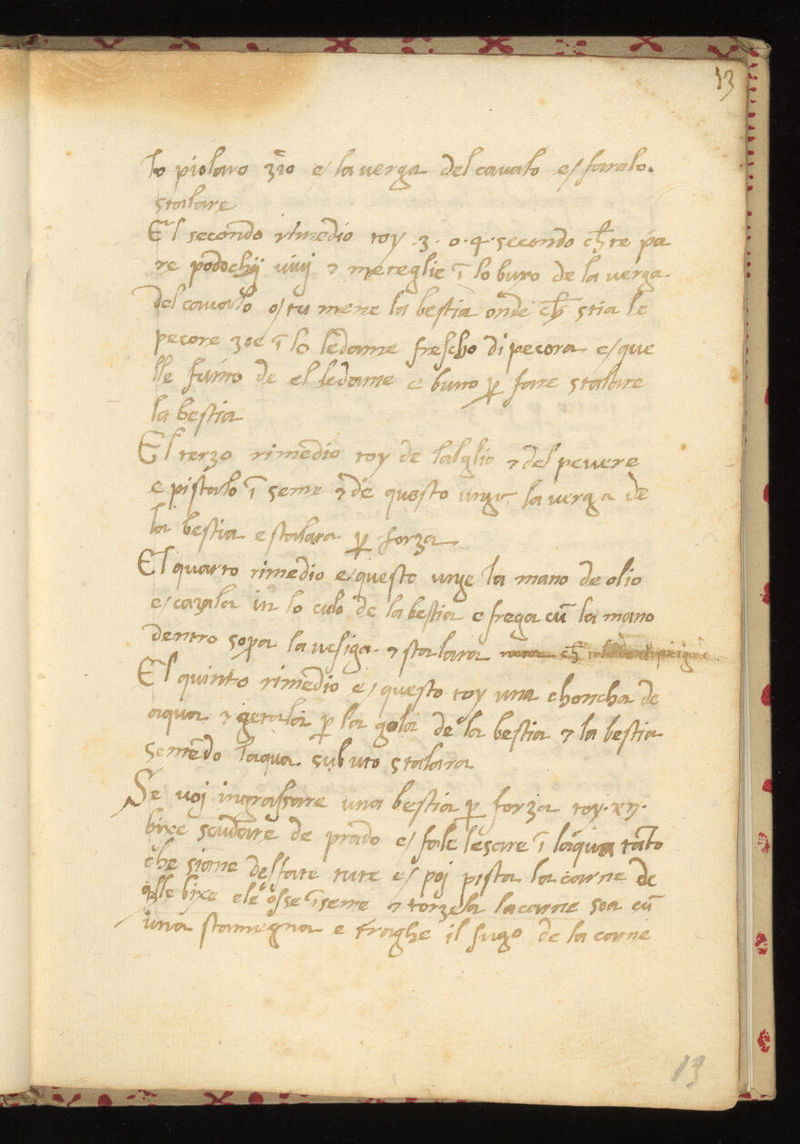 13
lo piolaro zio e/ la verga del cavalo e/ faralo
stalare
El secondo rimedio toy .3. o .4. secondo ch̅ te pa
re podochij vivi ⁊ meteglie ī lo buxo de la verga
del cavalo o/ tu mene la bestia onde ch̅ stia le
pecore zoe ī lo ledame frescho di pecora e/ que
lle fumo de el ledame e buno ꝑ fare stalare
la bestia
El terzo rimedio toy de lalglio ⁊ del pevere
e pistalo ī seme ⁊ de questo unge la verga de
la bestia e stalara ꝑ forza
El quarto rimedio e/ questo unge la mano de olio
e/ cazala in lo culo de la bestia e frega cū la mano
dentro sopra la vesiga ⁊ stalara
El quinto rimedio e/ questo toy una choncha de
aqua ⁊ getala ꝑ la gola de la bestia ⁊ la bestia
sentēdo laqua subuto stalara
Se voj ingrassare una bestia ꝑ forza toy .xij.
bixe scudare de prado e/ fale lesare ī laqua tāto
che siane desfate tute e/ poj pista la carne de
q̄lle bixe ele osse īseme ⁊ torzela la carne soa cū
una stamegna e traghe il sugo de la carne
13